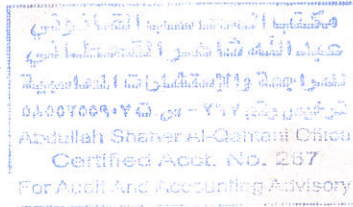 مكتب المحاسب القانوني
عبد الله شاهر القحطاني
للمراجعة والاستشارات المحاسبية
ترخيص رقم ٢٦٧ - س.ت
Abdullah Shaher Al-Qahtani Office
Certified Acct. No. 267
For Audit And Accounting Advisory